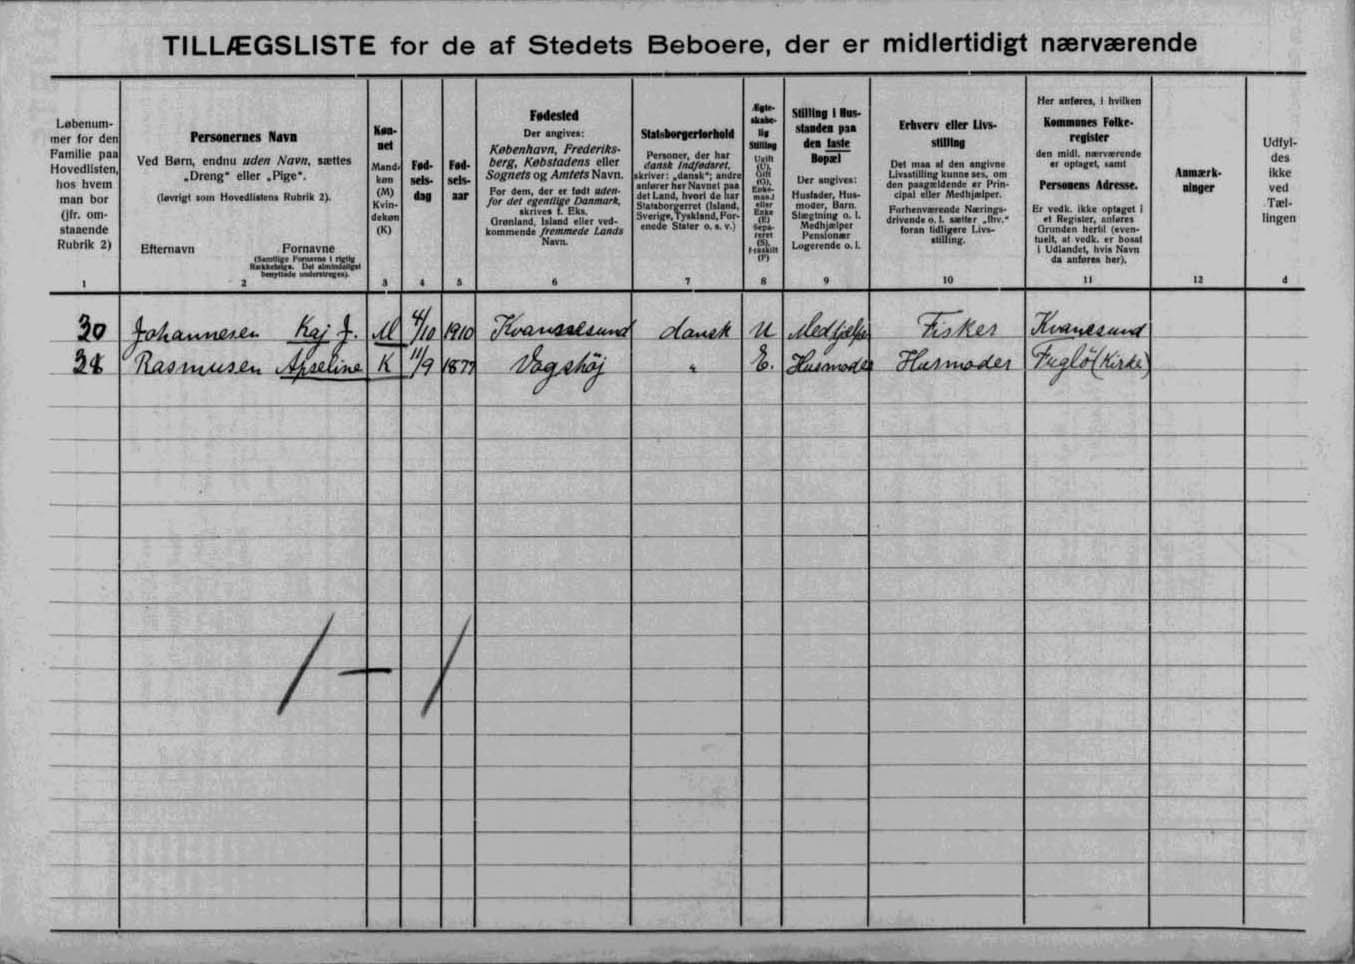 TILLÆGSLISTE for de af Stedets Beboere, der er midlertidigt nærværende
Løbenum-
mer for den
Familie paa
Hovedlisten,
hos hvem
man bor
(jfr. om-
staaende
Rubrik 2)
1
Personernes Navn
Ved Børn, endnu uden Navn, sættes
„Dreng“ eller „Pige“.
(Iøvrigt som Hovedlistens Rubrik 2).
Efternavn Fornavne
(Samtlige Fornavne i rigtig
Rækkefølge. Det almindeligst
benyttede understreges).
2
Køn-
net
Mand-
køn
(M)
Kvin-
dekøn
(K)
3
Fød-
sels-
dag
4
Fød-
sels-
aar
5
Fødested
Der angives:
København, Frederiks-
berg, Købstadens eller
Sognets og Amtets Navn.
For dem, der er født uden-
for det egentlige Danmark,
skrives f. Eks.
Grønland, Island eller ved-
kommende fremmede Lands
Navn.
6
Statsborgerforhold
Personer, der har
dansk Indfødsret,
skriver: „dansk“; andre
anfører her Navnet paa
det Land, hvori de har
Statsborgerret (Island,
Sverige, Tyskland, For-
enede Stater o. s. v.)
7
Ægte-
skabe-
lig
Stilling
Ugift
(U),
Gift
(G),
Enke-
mand
eller
Enke
(E)
Sepa-
reret
(S),
Fraskilt
(F)
8
Stilling i Hus-
standen paa
den faste
Bopæl
Der angives:
Husfader, Hus-
moder, Barn,
Slægtning o. l.
Medhjælper
Pensionær
Logerende o. l.
9
Erhverv eller Livs-
stilling
Det maa af den angivne
Livsstilling kunne ses, om
den paagældende er Prin-
cipal eller Medhjælper.
Forhenværende Nærings-
drivende o. l. sætter „fhv.“
foran tidligere Livs-
stilling.
10
Her anføres, i hvilken
Kommunes Folke-
register
den midl. nærværende
er optaget, samt
Personens Adresse.
Er vedk. ikke optaget i
et Register, anføres
Grunden hertil (even-
tuelt, at vedk. er bosat
i Udlandet, hvis Navn
da anføres her).
11
Anmærk-
ninger
12
Udfyl-
des
ikke
ved
Tæl-
lingen
d
30 Johannesen Kaj J. M 4/10 1910 dansk U Medhjelper Fisker Kvanesund
Rasmusen K 11/9 1877 Vagshöj „ E. Husmoder Husmoder Fuglö (Kirke)